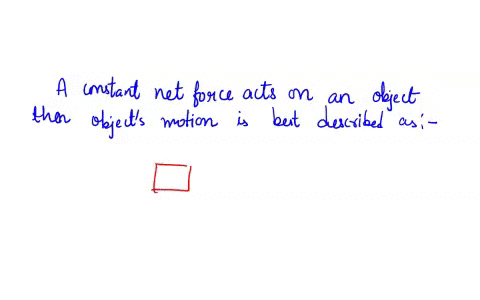 A constant net force acts on an object
then object's motion is best described as:-